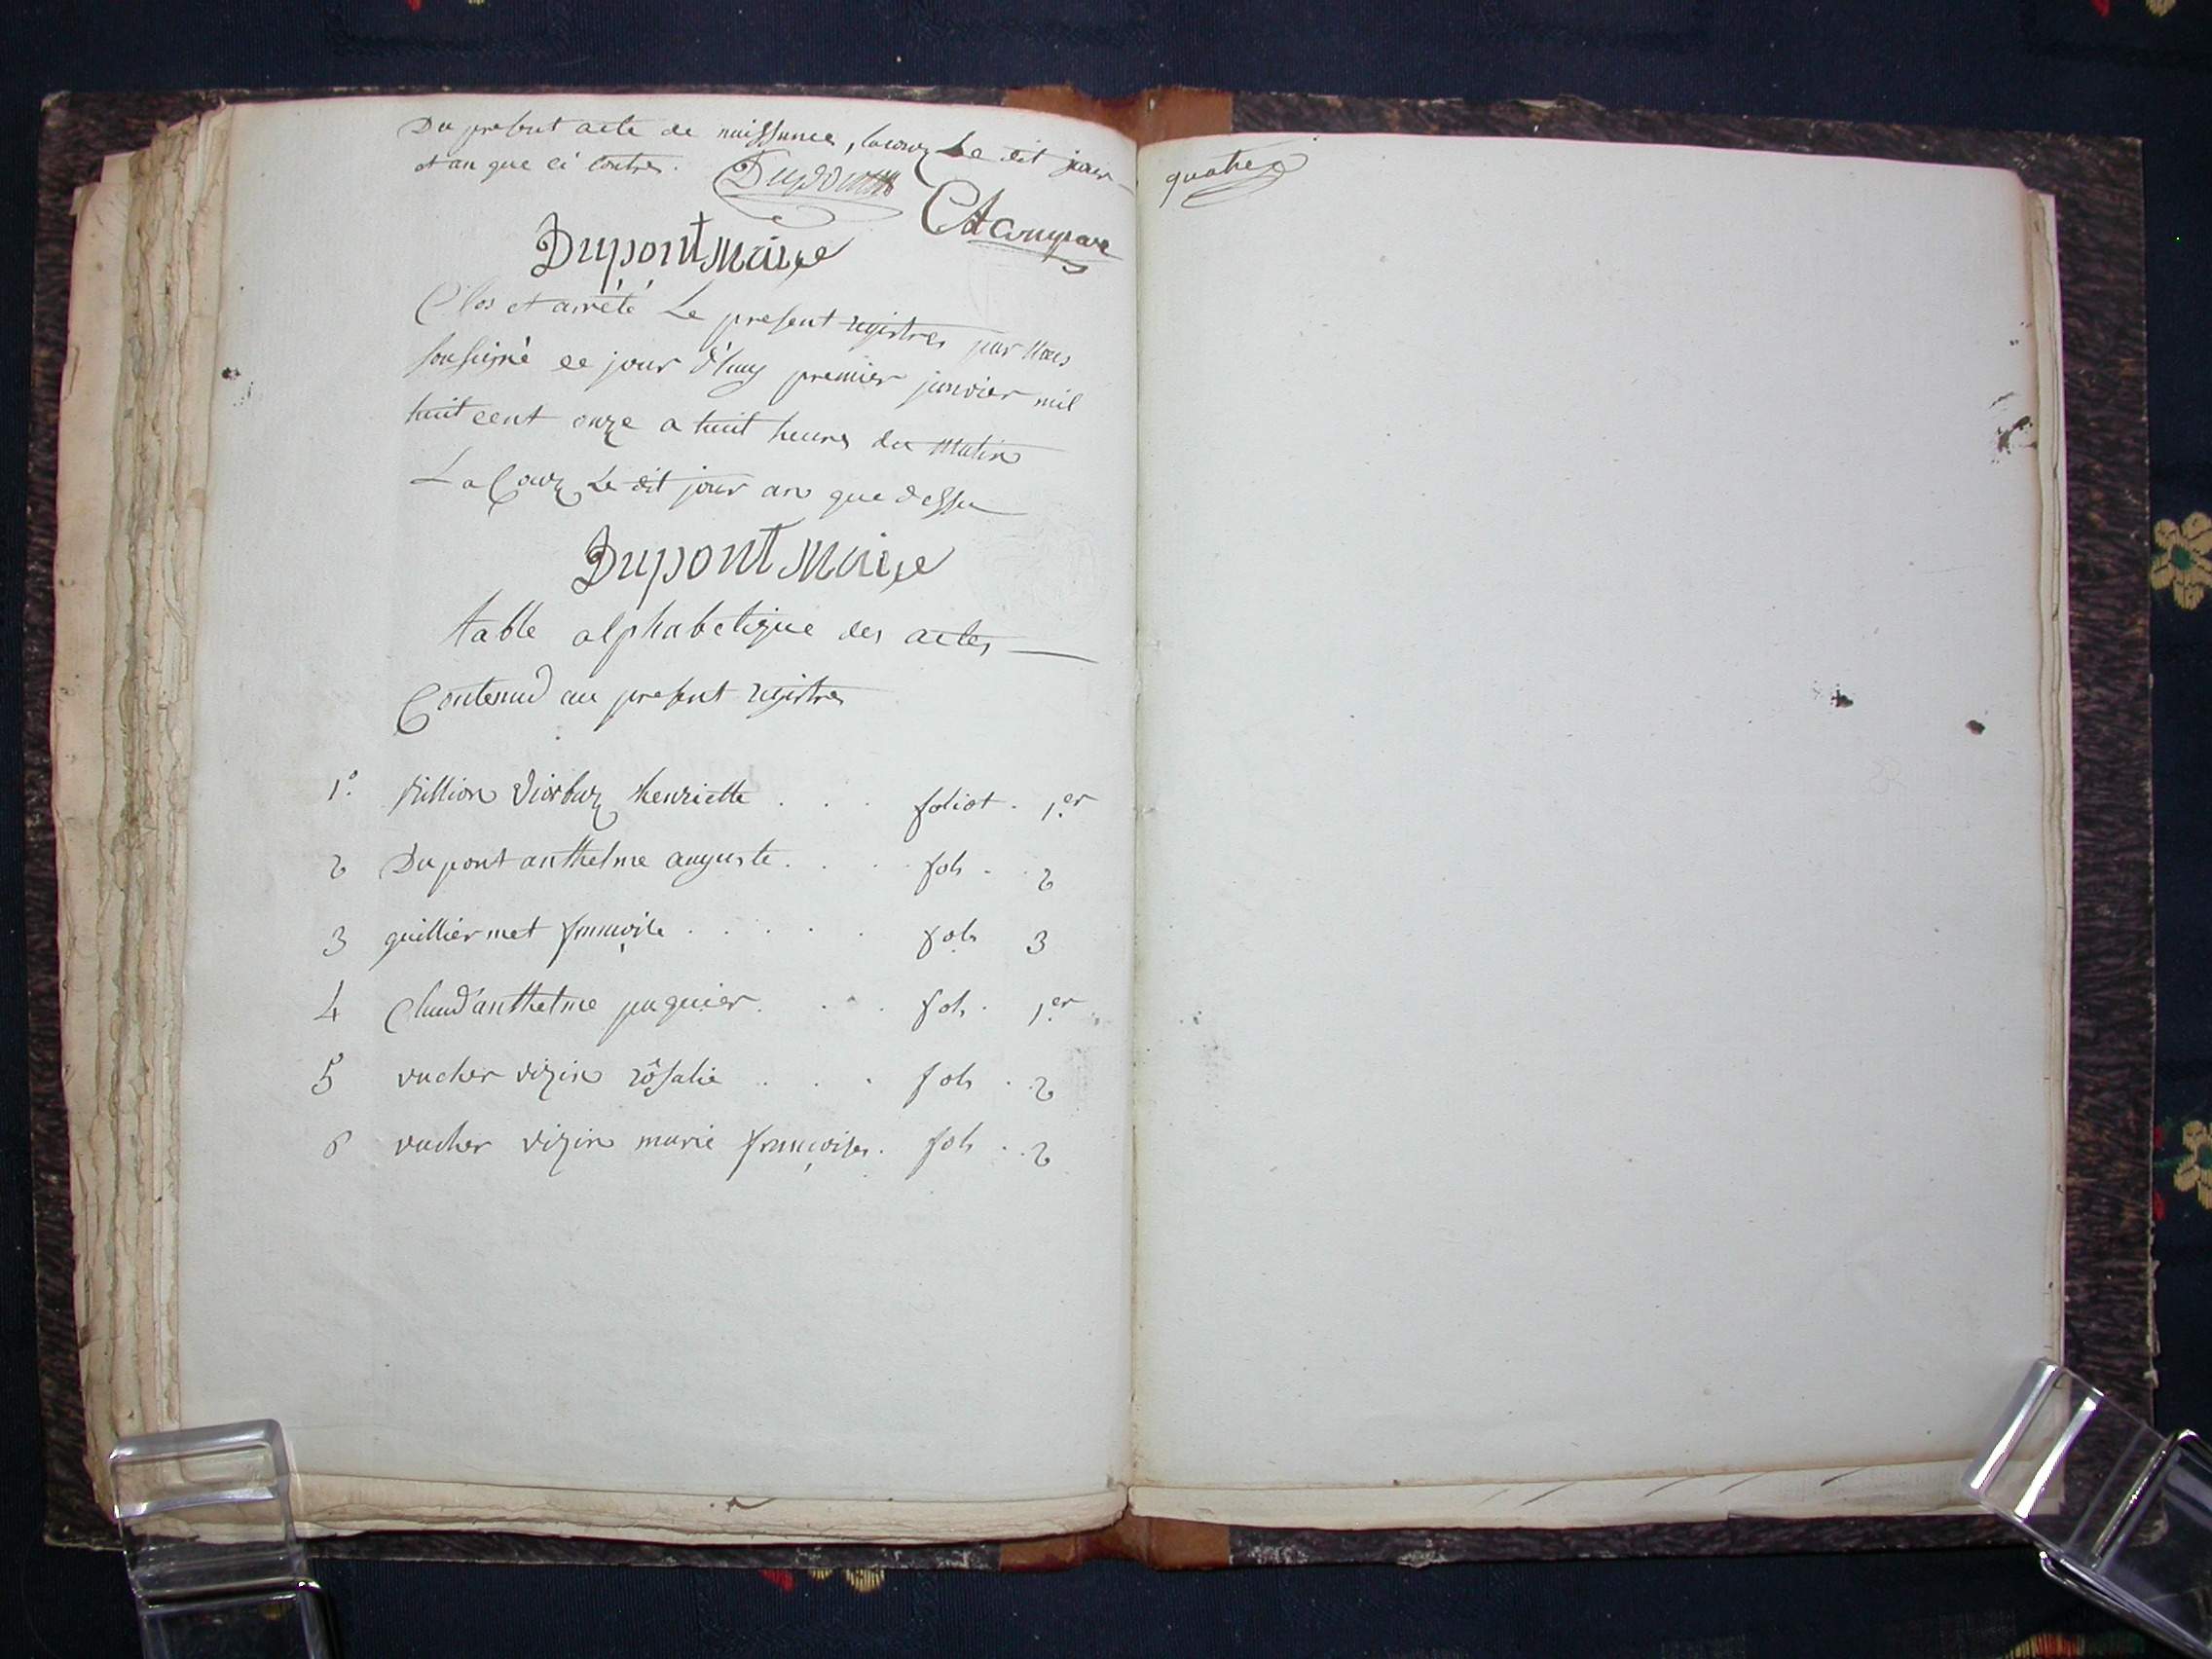 Du present acte de naissance, lacour Le dit jour
et an que ci contre. Dupont
Dupont Maire
Clos et arrêté Le present registres par Nous
soussigné ce jour d'huy premier janvier mil
huit cent onze a huit heures du Matin
La Cour Le dit jour an que dessu
Dupont Maire
table alphabetique des actes
Contenud au present registres
1° henriette . . . foliot . 1.er
2 Dupont anthelme auguste . . . fol. . 2
3 guilliermet françoise . . . . . fol. 3
4 Claud'anthelme paquier . . . fol. . 1.er
5 vucher vizin rôsalie . . . fol. . 2
6 vucher vizin marie françoises . fol. . . 2
quatre